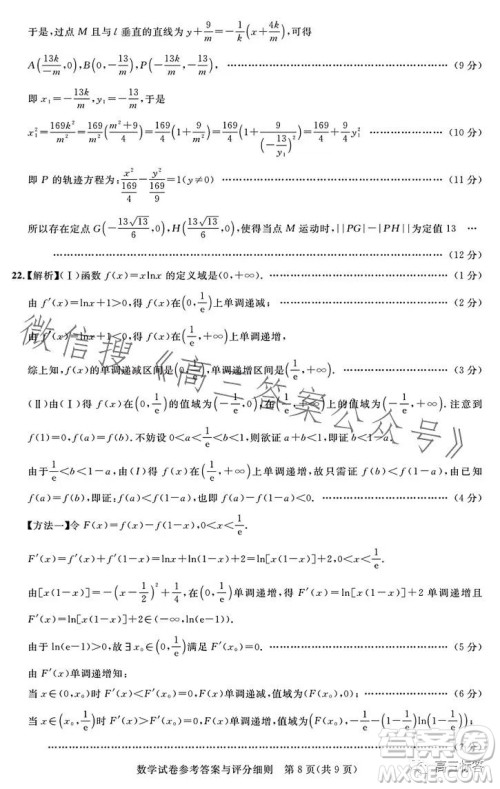 于是,过点 M 且与 l 垂直的直线为 y+9/m=-1/k(x+4k/m),可得
A(13k/m,0),B(0,-13/m),P(13k/m,-13/m), (9 分)
即 x₁=-13k/m,y₁=-13/m,于是
x₁²=169k²/m²=169/m²((m²+9)/4)=169/4(1+9/m²)=169/4(1+9/(-13/y₁)²)=169/4+9/4y₁² (10 分)
即 P 的轨迹方程为:x²/(169/4)-y²/(169/9)=1(y≠0) (11 分)
所以存在定点 G(-13√13/6,0),H(13√13/6,0),使得当点 M 运动时,||PG|-|PH||为定值 13
(12 分)
22.【解析】(Ⅰ)函数 f(x)=xlnx 的定义域是(0,+∞). (1 分)
由 f′(x)=lnx+1>0,得 f(x)在(0,1/e)上单调递减;
由 f′(x)=lnx+1>0,得 f(x)在(1/e,+∞)上单调递增,
综上知,f(x)的单调递减区间是(0,1/e),单调递增区间是(1/e,+∞). (3 分)
(Ⅱ)由(Ⅰ)得 f(x)在(0,1/e)的值域为(-1/e,0),在(1/e,+∞)的值域为(-1/e,+∞). 注意到
f(1)=0,f(a)=f(b). 不妨设 0<a<1/e<b<1,则欲证 a+b<1,即证 b<1-a.
由于1/e<b<1-a,由(Ⅰ)得 f(x)在(1/e,+∞)上单调递增,故只需证 f(b)<f(1-a).
由已知 f(a)=f(b),即证:f(a)<f(1-a),也即 f(a)-f(1-a)<0. (4 分)
【方法一】令 F(x)=f(x)-f(1-x),0<x<1/e.
F′(x)=f′(x)+f′(1-x)=lnx+1+ln(1-x)+1=ln[x(1-x)]+2=ln[x(1-x)]+2.
由[x(1-x)]=-(x-1/2)²+1/4在(0,1/e)单调递增,得 F′(x)=ln[x(1-x)]+2 单调递增且
F′(x)=ln[x(1-x)]+2∈(-∞,ln(e-1)).
由于 ln(e-1)>0,故∃x₀∈(0,1/e)使 F′(x₀)=0. (5 分)
由 F′(x)单调递增知:
当 x∈(0,x₀)时 F′(x)<F′(x₀)=0,F(x)单调递减,值域为(F(x₀),0); (6 分)
当 x∈(x₀,1/e)时 F′(x)>F′(x₀)=0,F(x)单调递增,值域为(F(x₀),F(1/e));
(7 分)
数学试卷参考答案与评分细则 第 8 页(共 9 页)
微信搜《高三答案公众号》
高三标答